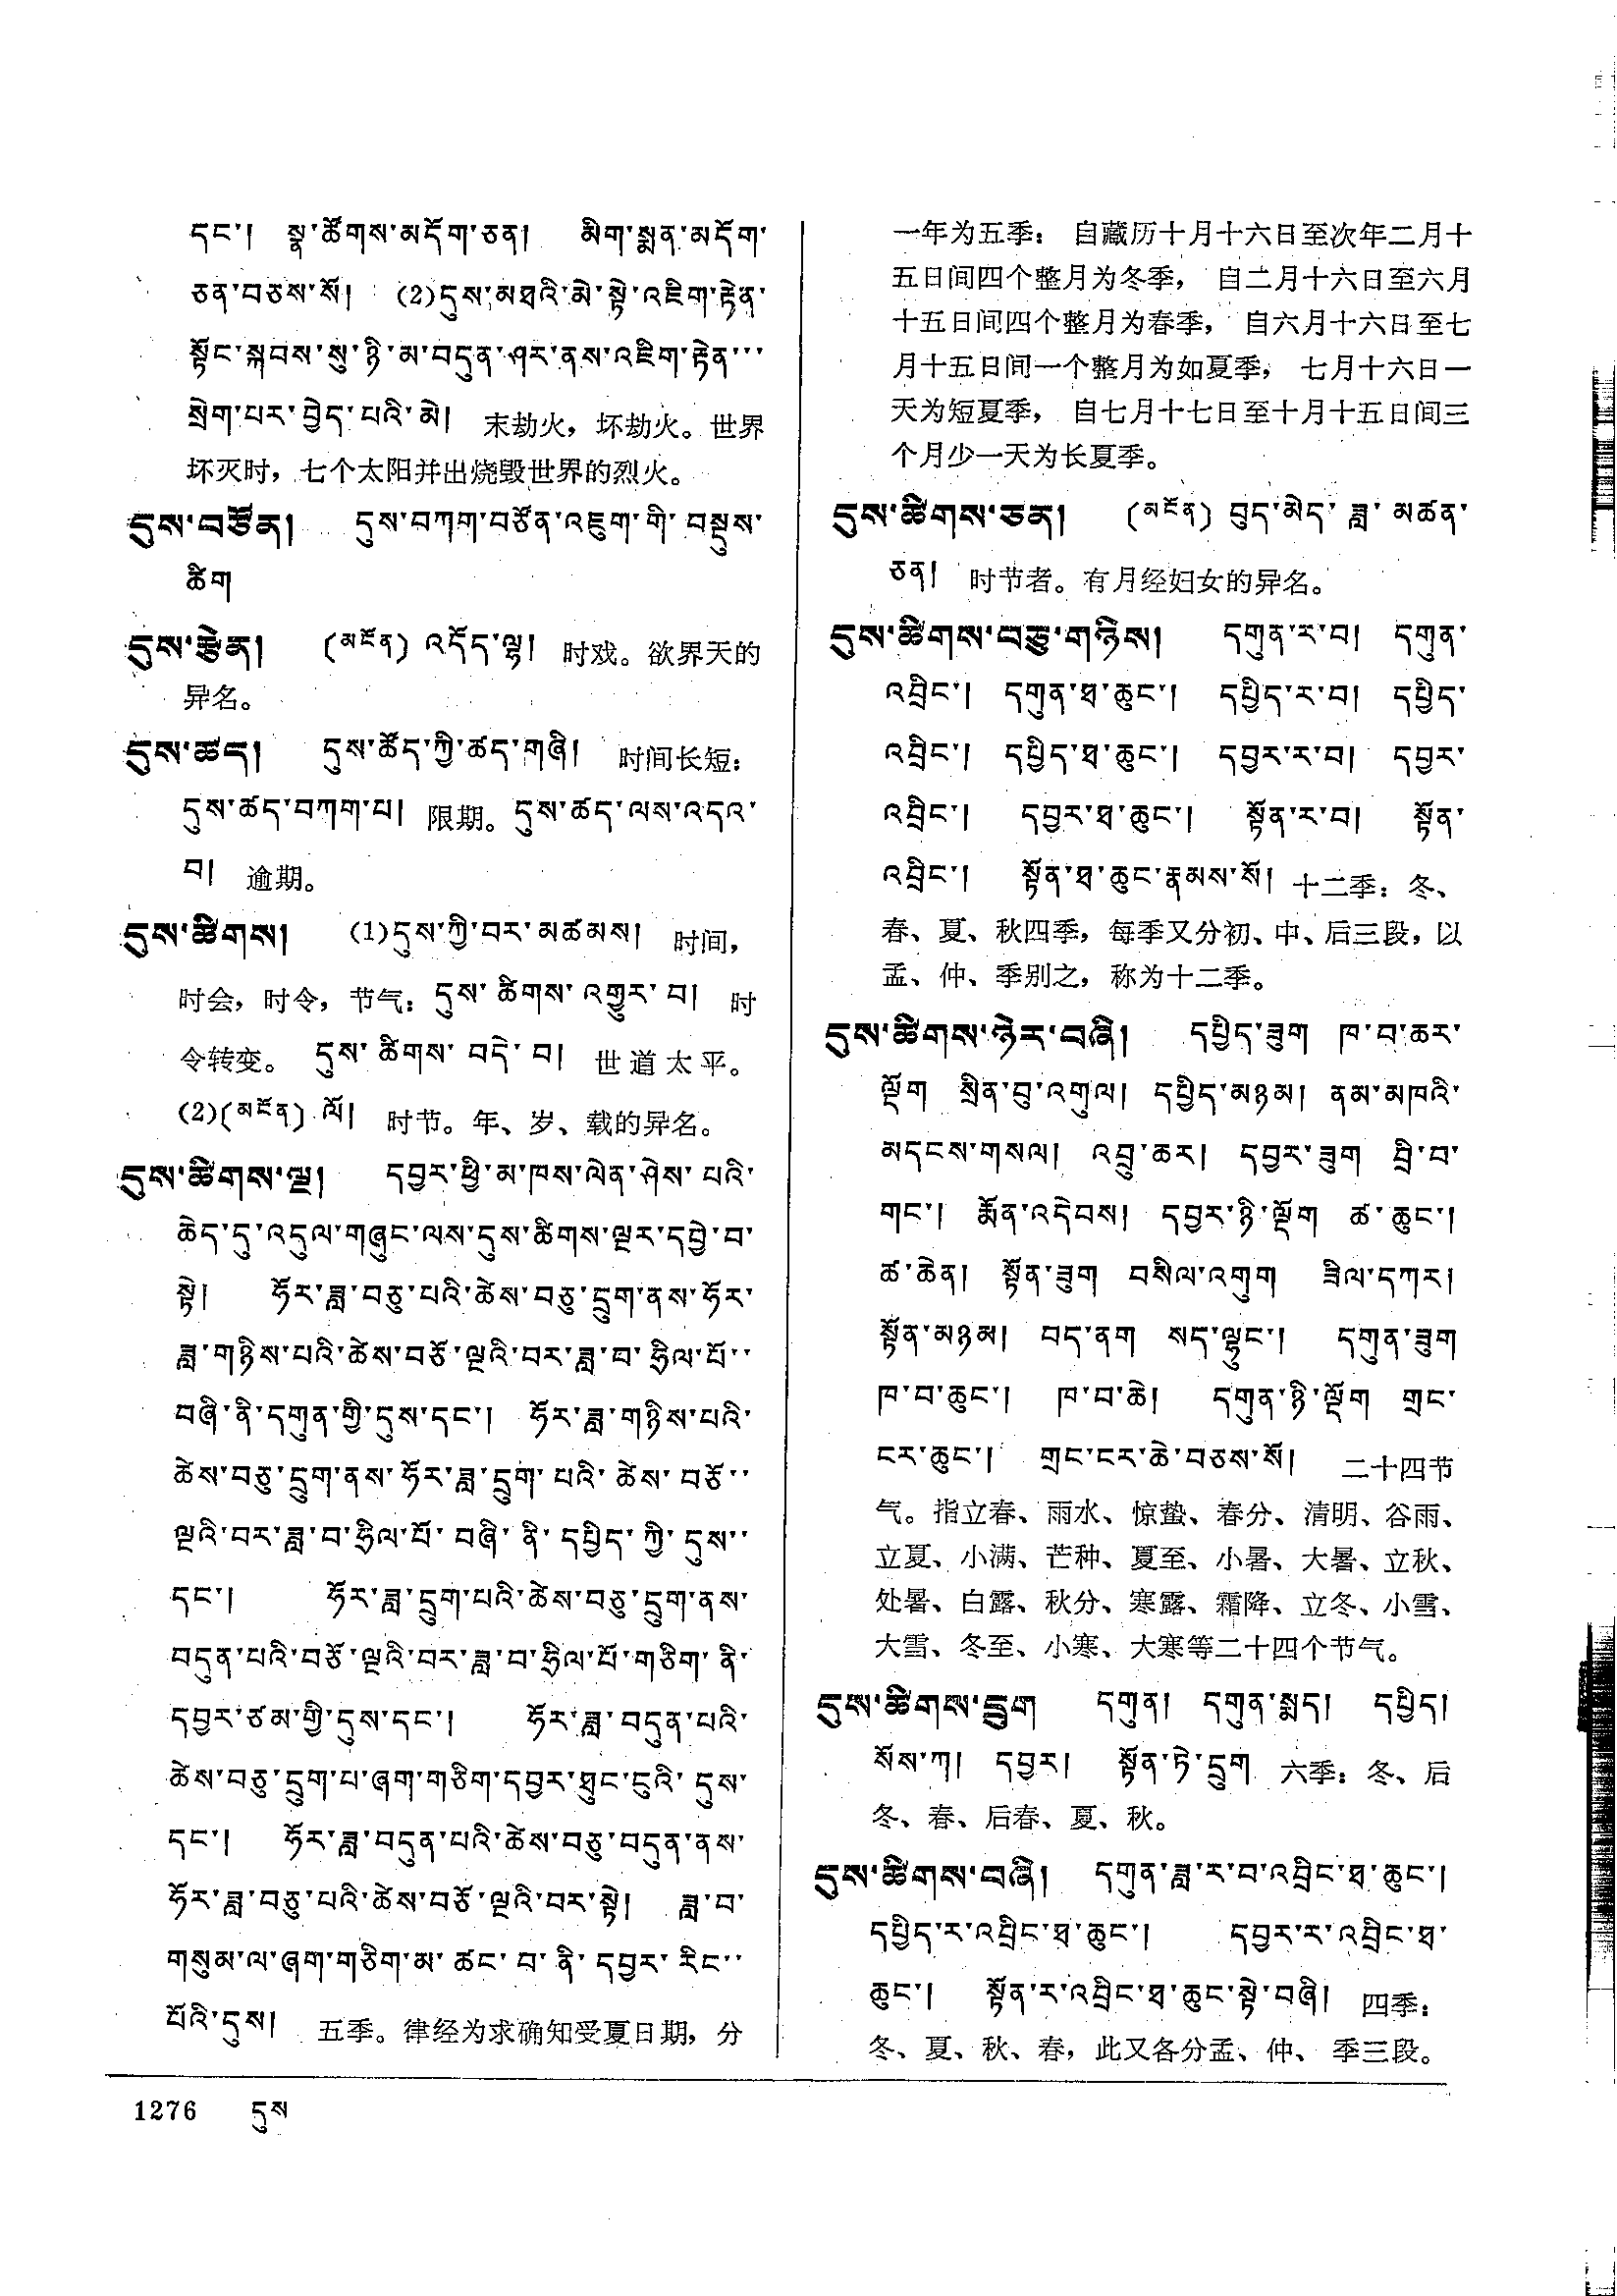 དང་། སྣ་ཚོགས་མདོག་ཅན། མིག་སྨན་མདོག་
ཅན་བཅས་སོ། (2)དུས་མཐའི་མེ་སྟེ་འཇིག་རྟེན་
སྟོང་སྐབས་སུ་ཉི་མ་བདུན་ཤར་ནས་འཇིག་རྟེན་་་
སྲེག་པར་བྱེད་པའི་མེ། 末劫火，坏劫火。世界
坏灭时，七个太阳并出烧毁世界的烈火。
དུས་བཙོན། དུས་བཀག་བཙོན་འཇུག་གི་བསྡུས་
ཚིག
དུས་རྩེན། (མངོན) འདོད་ལྷ། 时戏。欲界天的
异名。
དུས་ཚད། དུས་ཚོད་ཀྱི་ཚད་གཞི། 时间长短：
དུས་ཚད་བཀག་པ། 限期。དུས་ཚད་ལས་འདའ་
བ། 逾期。
དུས་ཚིགས། (1)དུས་ཀྱི་བར་མཚམས། 时间，
时会，时令，节气：དུས་ཚིགས་འགྱུར་བ། 时
令转变。 དུས་ཚིགས་བདེ་བ། 世道太平。
(2)(མངོན) ལོ། 时节。年、岁、载的异名。
དུས་ཚིགས་ལྔ། དབྱར་ཕྱི་མ་ཁས་ལེན་ཤེས་པའི་
ཆེད་དུ་འདུལ་གཞུང་ལས་དུས་ཚིགས་ལྔར་དབྱེ་བ་
སྟེ། ཧོར་ཟླ་བཅུ་པའི་ཚེས་བཅུ་དྲུག་ནས་ཧོར་
ཟླ་གཉིས་པའི་ཚེས་བཅོ་ལྔའི་བར་ཟླ་བ་ཧྲིལ་པོ་་
བཞི་ནི་དགུན་གྱི་དུས་དང་། ཧོར་ཟླ་གཉིས་པའི་
ཚེས་བཅུ་དྲུག་ནས་ཧོར་ཟླ་དྲུག་པའི་ཚེས་བཅོ་་
ལྔའི་བར་ཟླ་བ་ཧྲིལ་པོ་བཞི་ནི་དཔྱིད་ཀྱི་དུས་་
དང་། ཧོར་ཟླ་དྲུག་པའི་ཚེས་བཅུ་དྲུག་ནས་
བདུན་པའི་བཅོ་ལྔའི་བར་ཟླ་བ་ཧྲིལ་པོ་གཅིག་ནི་
དབྱར་ཙམ་གྱི་དུས་དང་། ཧོར་ཟླ་བདུན་པའི་
ཚེས་བཅུ་དྲུག་པ་ཞག་གཅིག་དབྱར་ཐུང་ངུའི་དུས་
དང་། ཧོར་ཟླ་བདུན་པའི་ཚེས་བཅུ་བདུན་ནས་
ཧོར་ཟླ་བཅུ་པའི་ཚེས་བཅོ་ལྔའི་བར་སྟེ། ཟླ་བ་
གསུམ་ལ་ཞག་གཅིག་མ་ཚང་བ་ནི་དབྱར་རིང་་
པོའི་དུས། 五季。律经为求确知受夏日期，分
一年为五季：自藏历十月十六日至次年二月十
五日间四个整月为冬季，自二月十六日至六月
十五日间四个整月为春季，自六月十六日至七
月十五日间一个整月为如夏季，七月十六日一
天为短夏季，自七月十七日至十月十五日间三
个月少一天为长夏季。
དུས་ཚིགས་ཅན། (མངོན) བུད་མེད་ཟླ་མཚན་
ཅན། 时节者。有月经妇女的异名。
དུས་ཚིགས་བཅུ་གཉིས། དགུན་ར་བ། དགུན་
འབྲིང་། དགུན་ཐ་ཆུང་། དཔྱིད་ར་བ། དཔྱིད་
འབྲིང་། དཔྱིད་ཐ་ཆུང་། དབྱར་ར་བ། དབྱར་
འབྲིང་། དབྱར་ཐ་ཆུང་། སྟོན་ར་བ། སྟོན་
འབྲིང་། སྟོན་ཐ་ཆུང་རྣམས་སོ། 十二季：冬、
春、夏、秋四季，每季又分初、中、后三段，以
孟、仲、季别之，称为十二季。
དུས་ཚིགས་ཉེར་བཞི། དཔྱིད་ཟུག ཁ་བ་ཆར་
ལྡོག སྲིན་བུ་འགུལ། དཔྱིད་མཉམ། ནམ་མཁའི་
མདངས་གསལ། འབྲུ་ཆར། དབྱར་ཟུག བྲི་བ་
གང་། རྨོན་འདེབས། དབྱར་ཉི་ལྡོག ཚ་ཆུང་།
ཚ་ཆེན། སྟོན་ཟུག བསིལ་འགུག ཟིལ་དཀར།
སྟོན་མཉམ། བད་ནག སད་ལྷུང་། དགུན་ཟུག
ཁ་བ་ཆུང་། ཁ་བ་ཆེ། དགུན་ཉི་ལྡོག གྲང་
ངར་ཆུང་། གྲང་ངར་ཆེ་བཅས་སོ། 二十四节
气。指立春、雨水、惊蛰、春分、清明、谷雨、
立夏、小满、芒种、夏至、小暑、大暑、立秋、
处暑、白露、秋分、寒露、霜降、立冬、小雪、
大雪、冬至、小寒、大寒等二十四个节气。
དུས་ཚིགས་དྲུག དགུན། དགུན་སྨད། དཔྱིད།
སོས་ཀ། དབྱར། སྟོན་ཏེ་དྲུག 六季：冬、后
冬、春、后春、夏、秋。
དུས་ཚིགས་བཞི། དགུན་ཟླ་ར་བ་འབྲིང་ཐ་ཆུང་།
དཔྱིད་ར་འབྲིང་ཐ་ཆུང་། དབྱར་ར་འབྲིང་ཐ་
ཆུང་། སྟོན་ར་འབྲིང་ཐ་ཆུང་སྟེ་བཞི། 四季：
冬、夏、秋、春，此又各分孟、仲、季三段。
1276 དུས